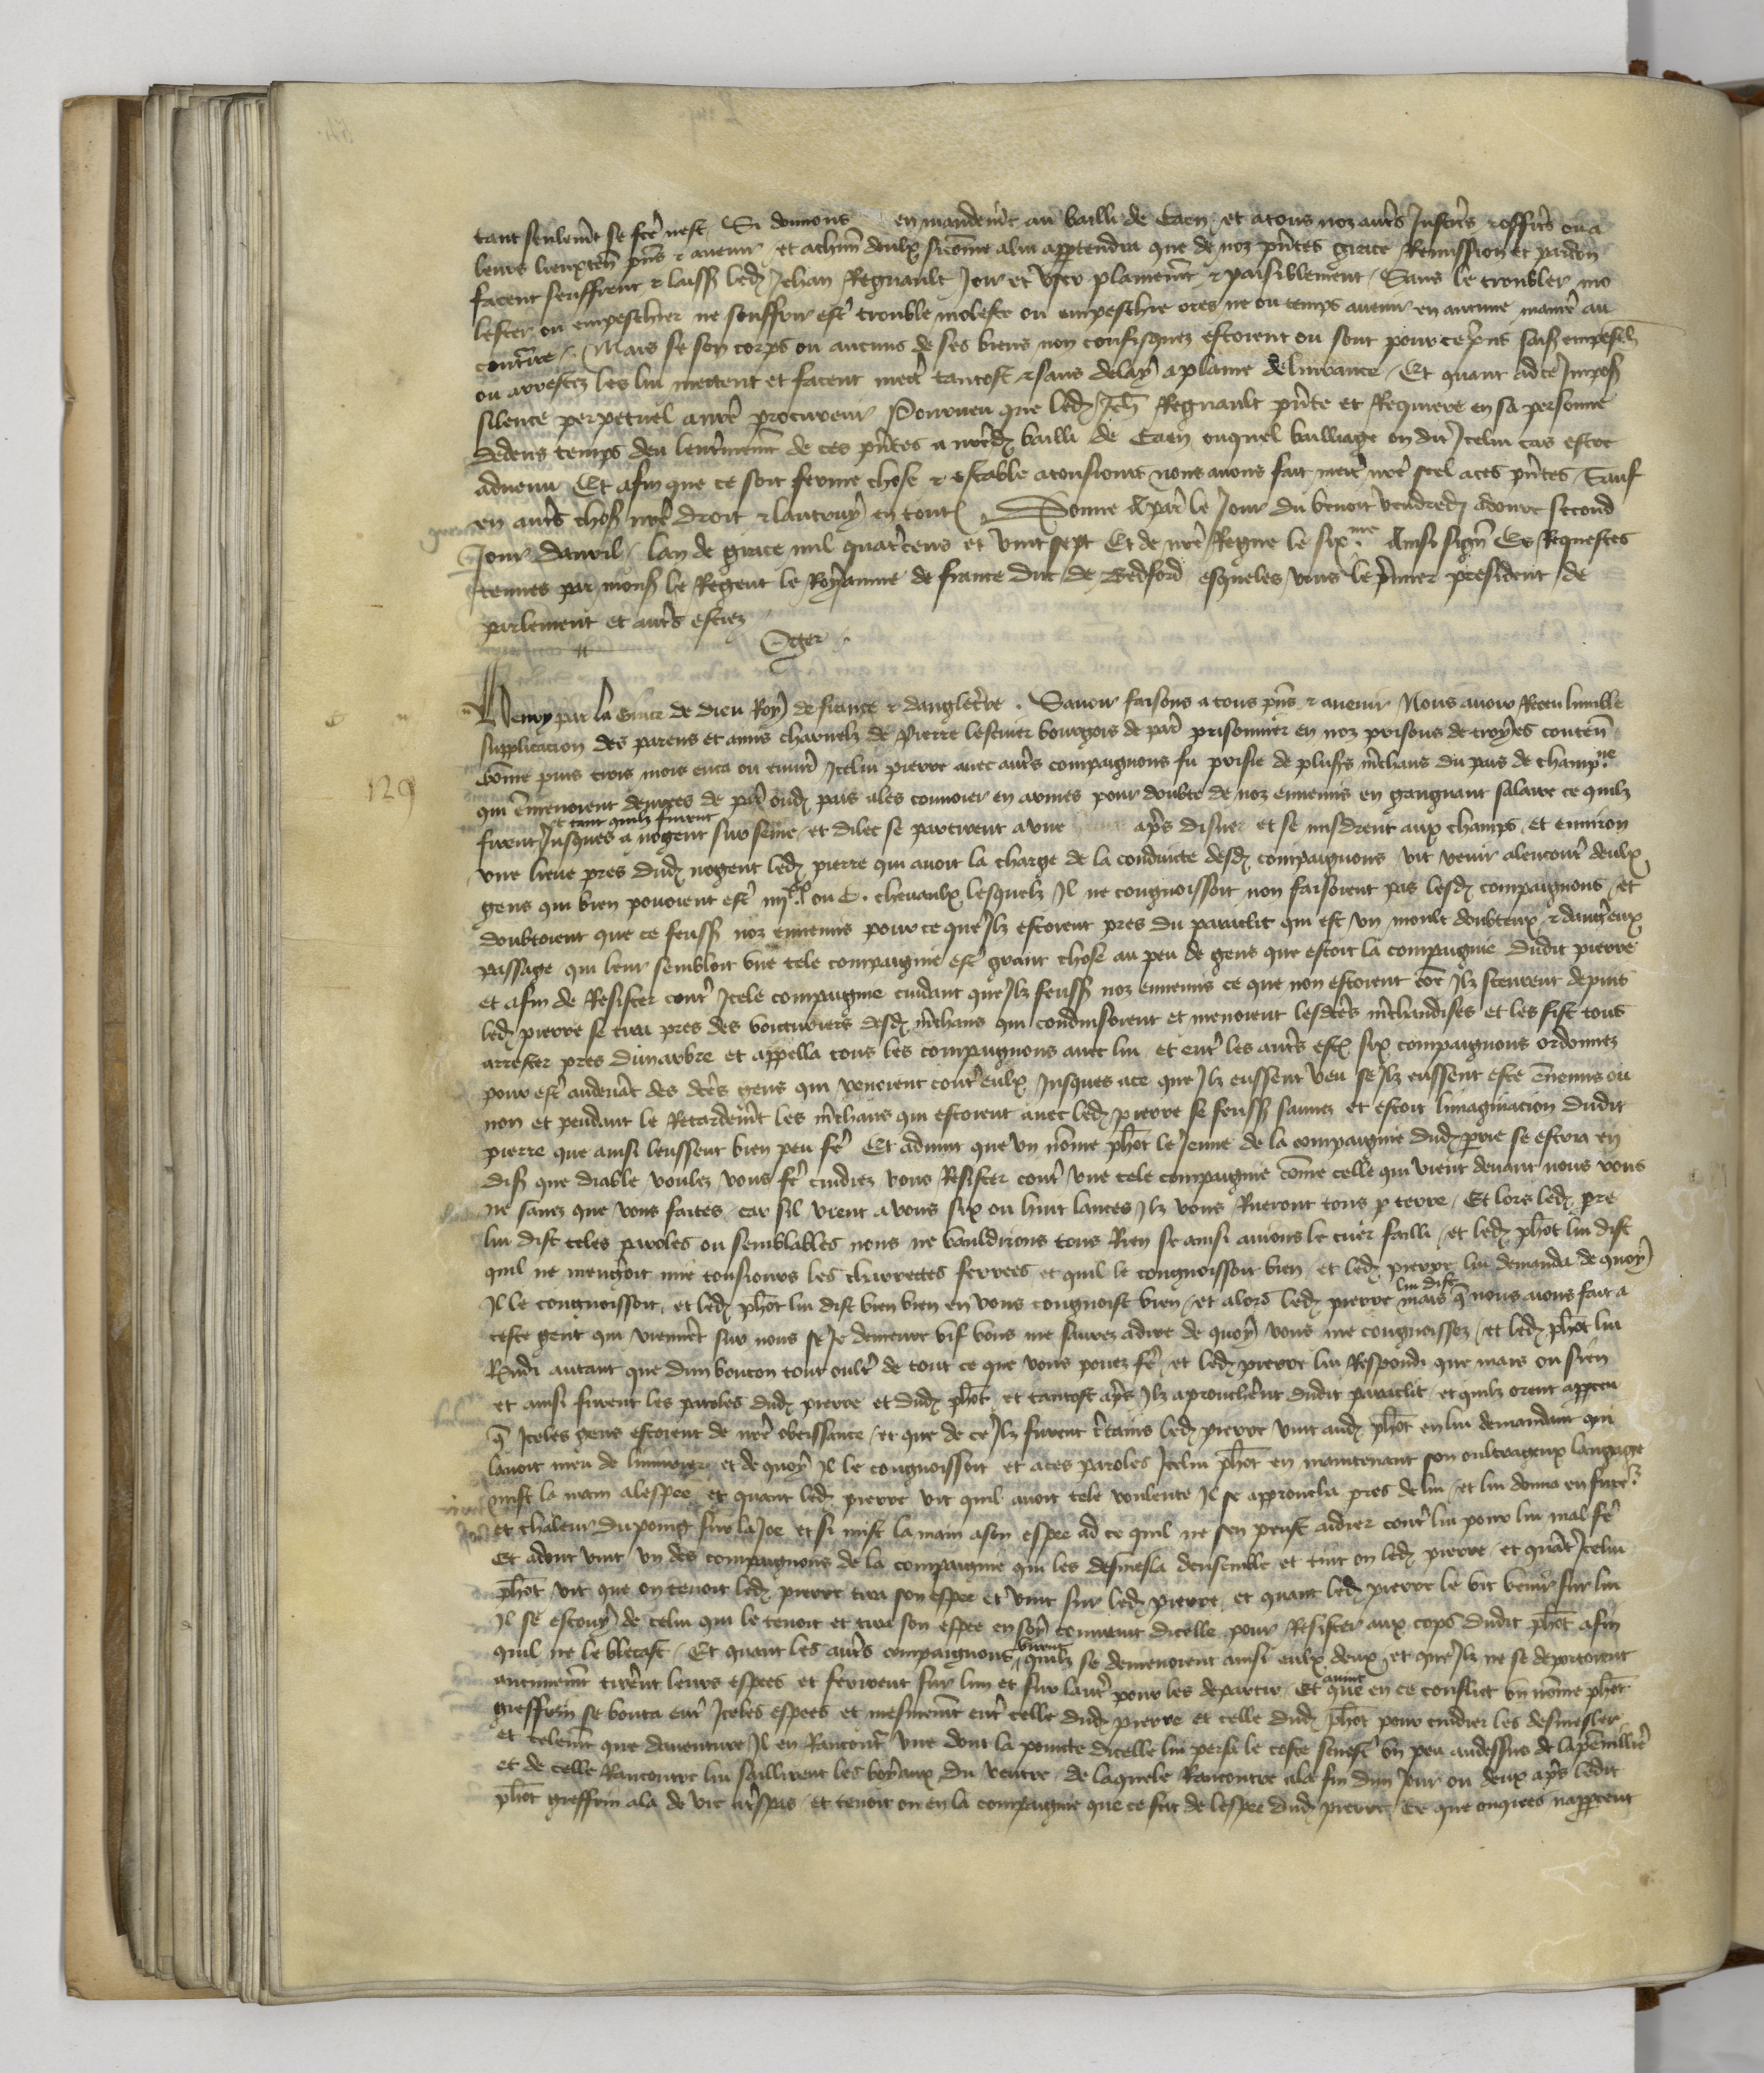 tant seulemt se fcē nest. Si donnons en mandemt au bailli de Caen et a tous noz autrs Justicrs & officrs ou a
leurs lieuxten pñs & avenir et a chun deulx sicōme a lui appartendra que de noz pñtes grace Remission et pardon
facent seuffrent & laissẽ led Jehan Regnault Joir et user plainemt & paisiblement Sans le troubler mo
lester ou empeschier ne souffrir estr trouble moleste ou empeschie ores ne ou temps avenir en aucune maniere au
contrre. Mais se son corps ou aucuns de ses biens non confisquez estoient ou sont pour ce pris saisiz empesch
ou arrestez les lui mettent et facent mectr tantost & sans delay a plaine delivrance Et quant ad ce Imposẽ
silence perpetuel a nre procureur Pourveu que led Jeh Regnault pñte et Requiere en sa personne
dedens temps deu lenterinemt de ces pñtes a nrēd bailli de Caen ouquel bailliage on dit Icelui cas estre
advenu Et afin que ce soit ferme chose & estable a tousiours nous avons fait mectr nre scel a ces pñtes Sauf
en autrs chosẽ nrē droit & lautruy en toutẽ Donne A par le Jour du benoit vendredj adoure second
Jour davril lan de grace mil quatrcens et vint sept Et de nre Regne le sixme Ainsi signe Es Requestes
tenues par monsr le Regent le Royaume de france duc de Bedford esqueles vous le pmier president de
parlement et autrs estiez
Oger.
Henry par la Grace de dieu Roy de france & dangletrre. Savoir faisons a tous pñs & avenir Nous avoir Receu lumble
supplicacion des parens et amis charnelz de Pierre lescuier bourgois de par prisonnier en noz prisons de troyes conten
129
Cōme puis trois mois enca ou envir Icelui pierre avec autrs compaignons fu prisie de plusrs mchans du pais de champne
qui ēmenoient denrees de par oud pais ales convoier en armes pour doubte de noz ennemis en gangnant salaire ce quilz
et tant quilz furent
firent Jusques a nogent sur seine et dilec se partirent a une aprs disner et se misdrent aux champs Et environ
une lieue pres dud nogent led pierre qui avoit la charge de la conduicte desd compaignons vit venir alencontr deulx
gens qui bien povoient estr iiijxx ou C. chevaulx lesquelz Il ne congnoissoit non faisoient pas lesd compaignons et
doubtoient que ce feussẽ noz ennemis pour ce que Ilz estoient pres du paraclit qui est un moult doubteux & dangreux
passage qui leur sembloit une tele compaignie estr grant chose au peu de gens que estoit la compaignie dudit pierre
et afin de Resister contr Icele compaignie cuidant que Ilz feussẽ noz ennemis ce que non estoient cōe Ilz sceurent depuis
led pierre se tira pres des voicturiers desd mchans qui conduisoient et menoient lesdctes mchandises et les fist tous
arrester pres dun arbre et appella tous les compaignons avec lui et entr les autrs estẽ six compaignons ordonnez
pour estr audevāt des dctes gens qui venoient contr eulx Jusques a ce que Ilz eussent veu se Ilz eussent este ēnemis ou
non et pendant le Retardemt les mchans qui estoient avec led pierre se feussẽ sauvez et estoit limaginacion dudit
pierre que ainsi leussent bien peu fē Et advint que un nōme phot le Jeune de la compaignie dud pierre se escria en
disẽ que diable voulez vous fē cuidiez vous Resister contr une tele compaignie cōme celle qui vient devant nous vous
ne savez que vous faites car sil vient a vous six ou huit lances Ilz vous Rueront tous p terre Et lors led pre
lui dist teles paroles ou semblables nous ne vauldrions tous Rien se ainsi avions le cuer failli et led phot lui dist
quil ne mengoit mie tousiours les charrectes ferrees et quil le congnoissoit bien et led pierre lui demanda de quoy
lui dist
Il le congnoissoit et led phot lui dist bien bien en vous congnoist bien et alors led pierre mais q nous aions fait a
ceste gent qui viennēt sur nous se Je demeure vif vous me saurez a dire de quoy vous me congnoissez et led phot lui
Rndi autant que dun bouton tout oultr de tout ce que vous povez fē et led pierre lui Respondi que mais ou sien
et ainsi furent les paroles dud pierre et dud phot et tantost aprs Ilz aprouchērnt dudit paraclit et quilz orent appceu
q Iceles gens estoient de nrē obeissance et que de ce Ilz furent ctains led pierre vint aud phot en lui demandant qui
lavoit meu de et de quoy Il le congnoissoit et a ces paroles Icelui phot en maintenant son oultrageux langage
mist la main a lespee et quant led pierre vit quil avoit tele voulente Il se approucha pres de lui et lui donna
et chaleur du poing sur la Joe et si mist la main a son espee ad ce quil ne sen peust aidier contr lui pour lui mal fē
Et adont vint un des compaignons de la compaignie qui les desmesla densemble et tint on led pierre et quāt Icelui
phot vit que on tenoit led pierre tira son espee et vint sur led pierre et quant led pierre le vit venir sur lui
Il se escouy de celui qui le tenoit et tira son espee en soy couvrant dicelle pour Resister aux cops dudit phot afin
virent
quil ne le blecast Et quant les autrs compaignons quilz se demenoient ainsi eulx deux et que Ilz ne se deportoient
avint
aucunemt tirēnt leurs espees et ferirent sur lun et sur lautr pour les departir Et que en ce conflict un nōme phot
greffrin se bouta entr Iceles espees et mesmemt entr celle dud pierre et celle dud phot pour cuidier les desmesler
et telemt que daventure Il en Rancontr une dont la pointe dicelle lui persa le coste senestr un peu audessus de la penillier
et de celle Rancontre lui saillirent les boyaux du ventre de laquele Rancontre ala fin dun Jour ou deux aprs ledit
phot greffrin ala de vie a trspas et tenoit on en la compaignie que ce fut de lespee dud pierre Et que onques nappceut